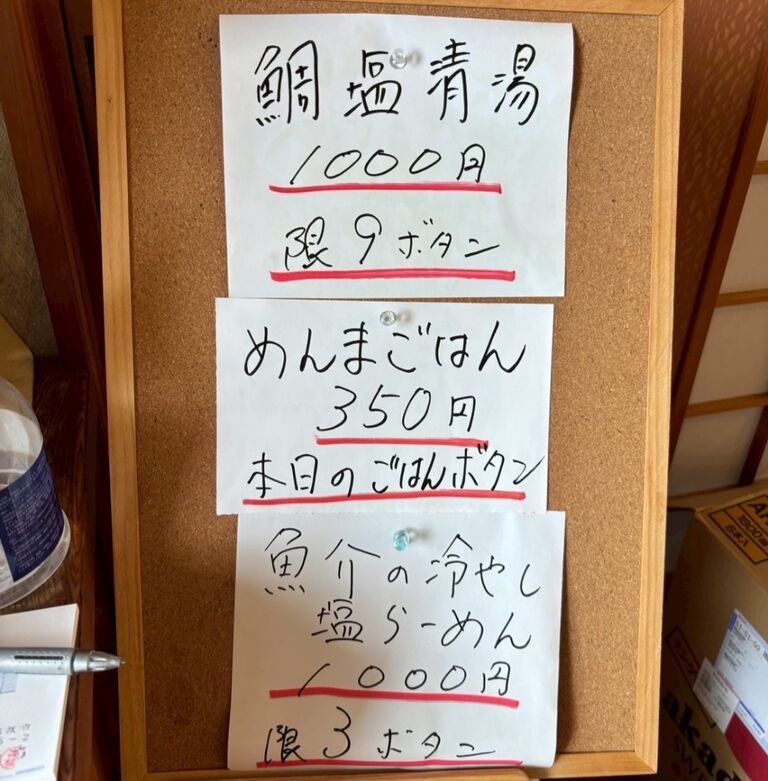 鯛塩清湯
1000円
限9ボタン
めんまごはん
350円
本日のごはんボタン
魚介の冷やし
塩らーめん
1000円
限3ボタン
1800
6本入